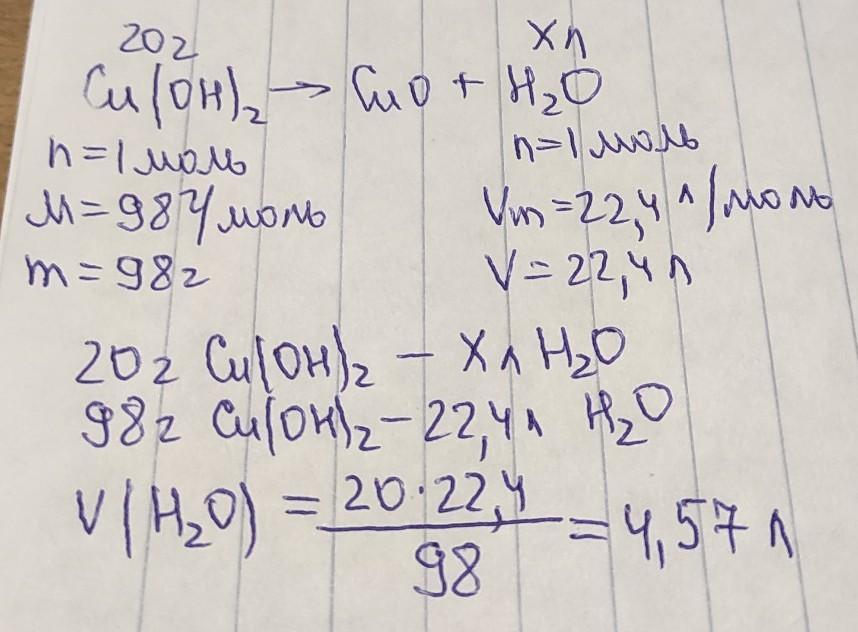 20г xл
Cu(OH)₂ → CuO + H₂O
n=1 моль n=1 моль
M=98 г/моль Vm=22,4 л/моль
m=98г V=22,4 л
20г Cu(OH)₂ – x л H₂O
98г Cu(OH)₂ – 22,4л H₂O
V(H₂O) = 20·22,4 / 98 = 4,57 л